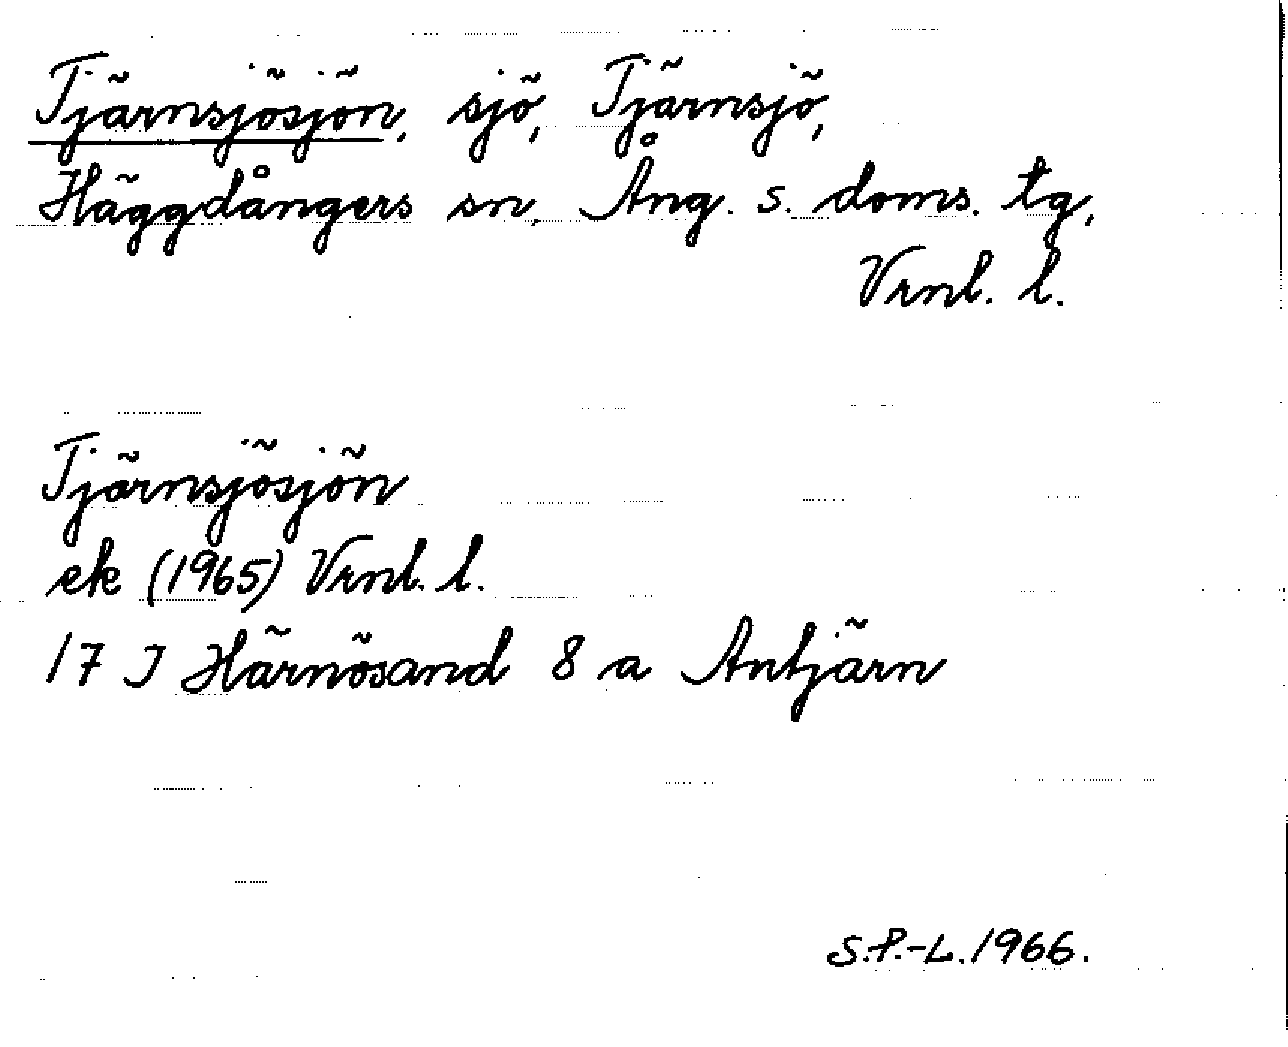 Tjärnsjösjön, sjö, Tjärnsjö,
Häggdångers sn, Ång. s. doms. tg,
Vrnl. l.
Tjärnsjösjön
ek (1965) Vrnl. l.
17 I Härnösand 8 a Antjärn
S.P.-L. 1966.